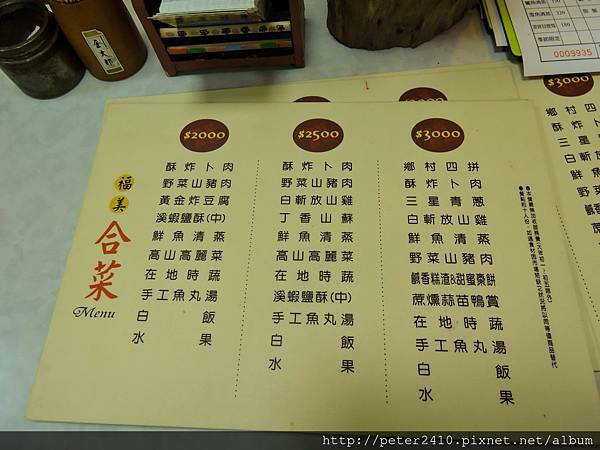 福美合菜
Menu
$2000
酥炸卜肉
野菜山豬肉
黃金炸豆腐
溪蝦鹽酥(中)
鮮魚清蒸
高山高麗菜
在地時蔬
手工魚丸湯
白飯
水果
$2500
酥炸卜肉
野菜山豬肉
白斬放山雞
丁香山蘇
鮮魚清蒸
高山高麗菜
在地時蔬
溪蝦鹽酥(中)
手工魚丸湯
白飯
水果
$3000
鄉村四拼
酥炸卜肉
三星青蔥
白斬放山雞
鮮魚清蒸
野菜山豬肉
鹹香糕渣&甜蜜棗餅
蔗燻蒜苗鴨賞
在地時蔬
手工魚丸湯
白飯
水果
$3000
鄉村
酥炸
三星
白斬
鮮魚
0009935
http://peter2410.pixnet.net/album